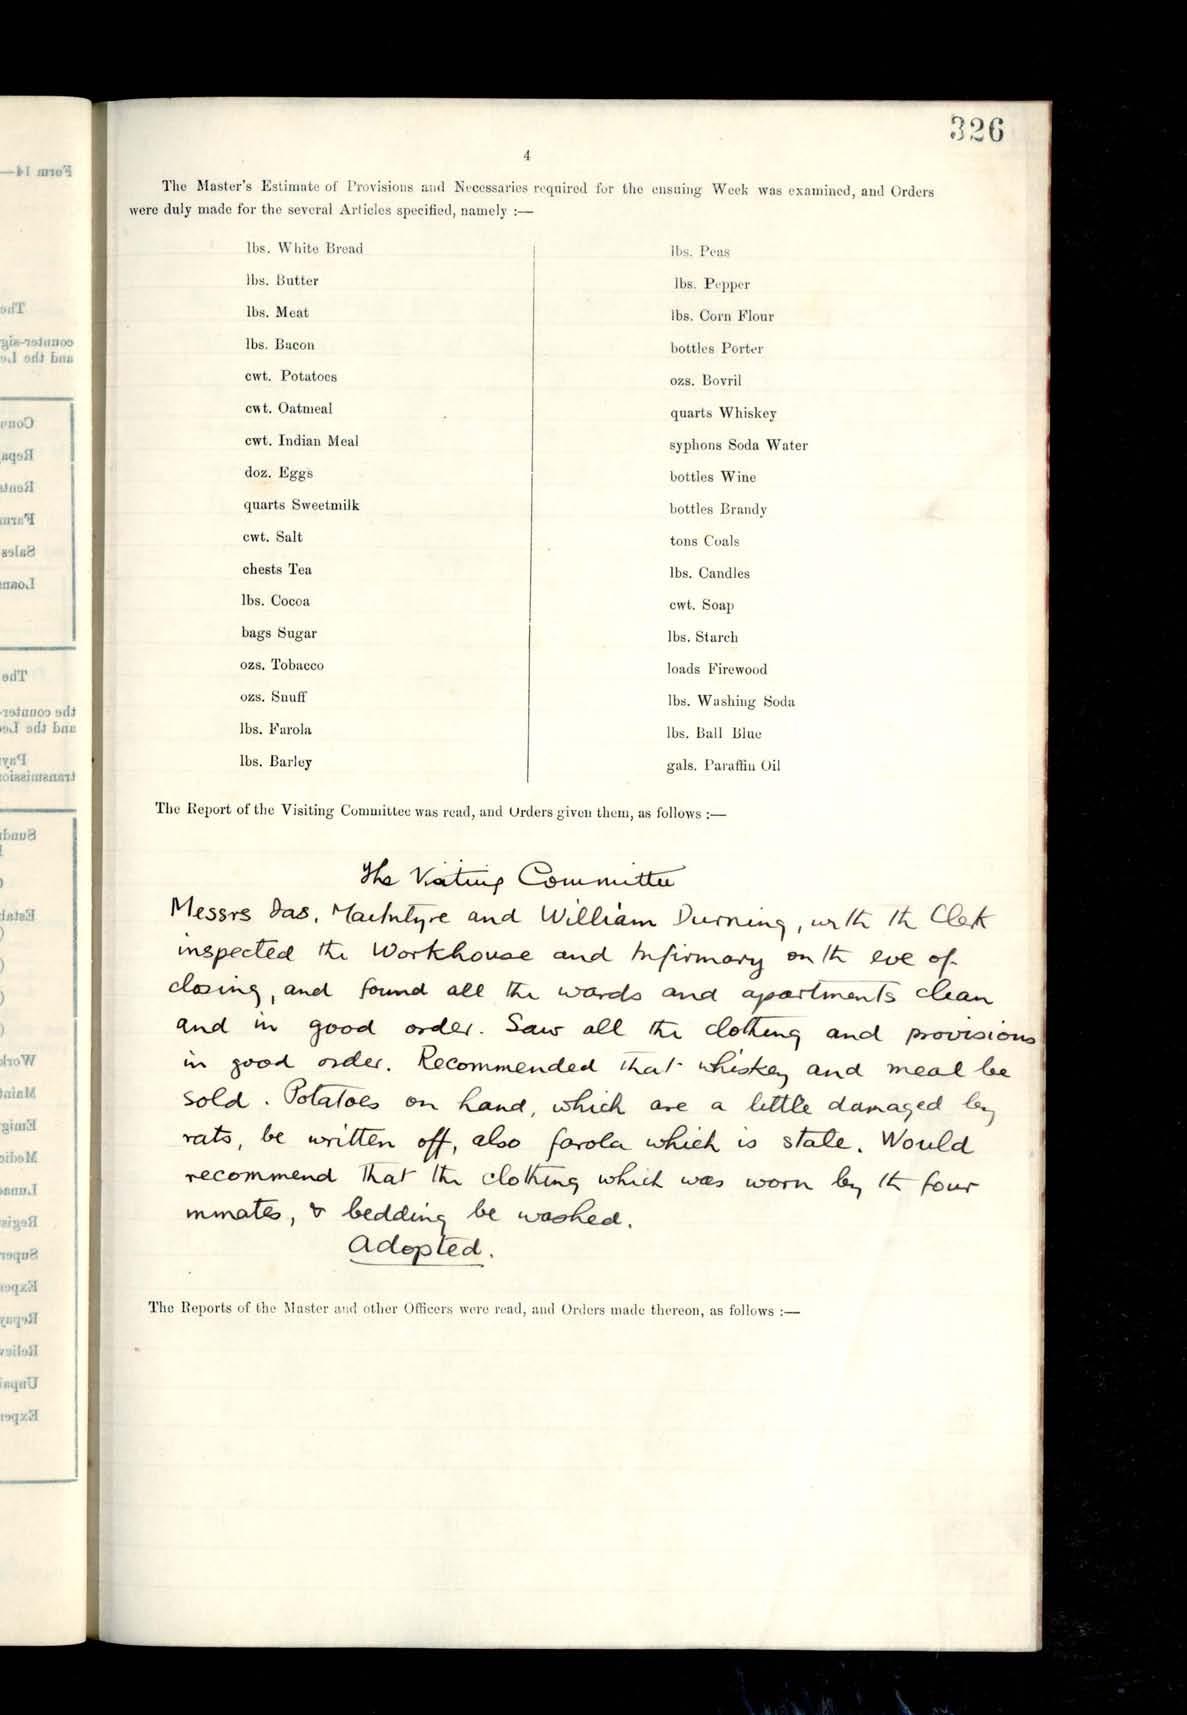 326
4
The Master's Estimate of Provisions and Necessaries required for the ensuing Week was examined, and Orders
were duly made for the several Articles specified, namely :—
lbs. White Bread
lbs. Butter
lbs. Meat
lbs. Bacon
cwt. Potatoes
cwt. Oatmeal
cwt. Indian Meal
doz. Eggs
quarts Sweetmilk
cwt. Salt
chests Tea
lbs. Cocoa
bags Sugar
ozs. Tobacco
ozs. Snuff
lbs. Farola
lbs. Barley
lbs. Peas
lbs. Pepper
lbs. Corn Flour
bottles Porter
ozs. Bovril
quarts Whiskey
syphons Soda Water
bottles Wine
bottles Brandy
tons Coals
lbs. Candles
cwt. Soap
lbs. Starch
loads Firewood
lbs. Washing Soda
lbs. Ball Blue
gals. Paraffin Oil
The Report of the Visiting Committee was read, and Orders given them, as follows :—
The Visiting Committee
Messrs Jas. MacIntyre and William Durning, with th Clerk
inspected the Workhouse and Infirmary on th eve of
closing, and found all the wards and apartments clean
and in good order. Saw all the clothing and provisions
in good order. Recommended that whiskey and meal be
sold. Potatoes on hand, which are a little damaged by
rats, be written off, also farola which is stale. Would
recommend that the clothing which was worn by th four
inmates, & bedding be washed.
Adopted.
The Reports of the Master and other Officers were read, and Orders made thereon, as follows :—